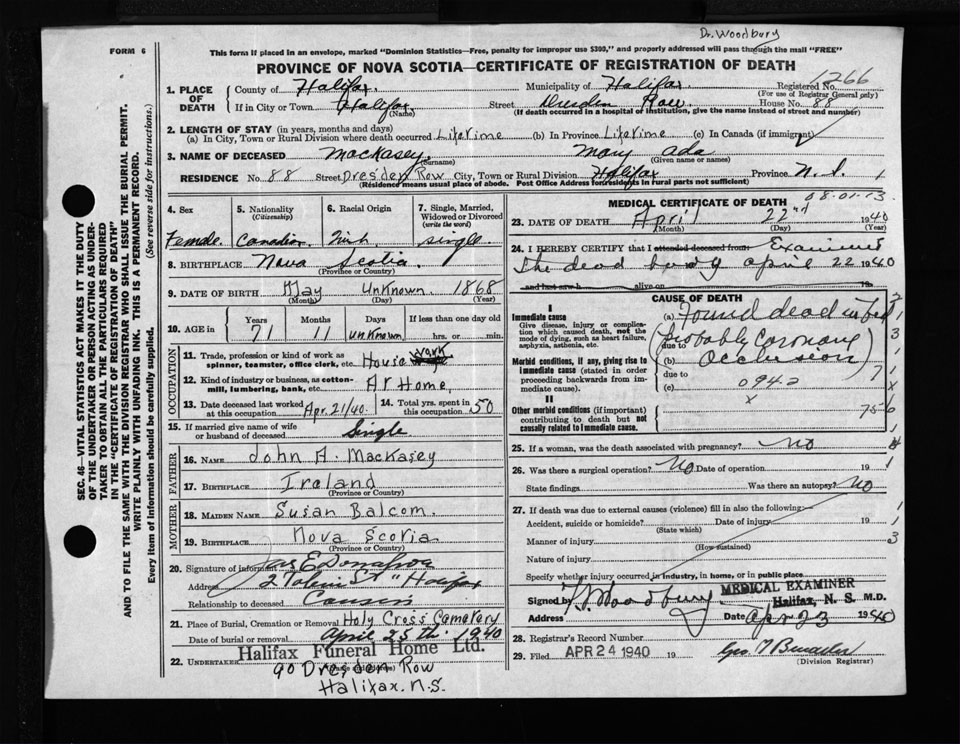 Dr. Woodbury
FORM 6
This form if placed in an envelope, marked "Dominion Statistics—Free, penalty for improper use $300," and properly addressed will pass through the mail "FREE"
PROVINCE OF NOVA SCOTIA—CERTIFICATE OF REGISTRATION OF DEATH
1266
1. PLACE OF DEATH
County of Halifax. Municipality of Halifax Registered No.
(For use of Registrar General only)
If in City or Town Halifax. (Name) Street Dresden Row House No. 88
(If death occurred in a hospital or institution, give the name instead of street and number)
2. LENGTH OF STAY (in years, months and days)
(a) In City, Town or Rural Division where death occurred Lifetime (b) In Province Lifetime (c) In Canada (if immigrant)
3. NAME OF DECEASED MacKasey. (Surname) Mary Ada (Given name or names)
RESIDENCE No. 88 Street Dresden Row City, Town or Rural Division Halifax Province N.S.
(Residence means usual place of abode. Post Office Address for residents in rural parts not sufficient)
08-01-13
4. Sex
Female.
5. Nationality (Citizenship)
Canadian
6. Racial Origin
Irish
7. Single, Married, Widowed or Divorced (write the word)
single
8. BIRTHPLACE Nova Scotia.
(Province or Country)
9. DATE OF BIRTH May (Month) Unknown. (Day) 1868 (Year)
10. AGE in Years 71 Months 11 Days unknown If less than one day old hrs. or min.
OCCUPATION
11. Trade, profession or kind of work as spinner, teamster, office clerk, etc. House work
12. Kind of industry or business, as cotton-mill, lumbering, bank, etc. At Home,
13. Date deceased last worked at this occupation Apr. 21/40. 14. Total yrs. spent in this occupation 50
15. If married give name of wife or husband of deceased Single
FATHER
16. NAME John A. MacKasey
17. BIRTHPLACE Ireland
(Province or Country)
MOTHER
18. MAIDEN NAME Susan Balcom.
19. BIRTHPLACE Nova Scotia
(Province or Country)
20. Signature of informant
Address Halifax
Relationship to deceased Cousin
21. Place of Burial, Cremation or Removal Holy Cross Cemetery
Date of burial or removal April 25th. 1940
22. UNDERTAKER Halifax Funeral Home Ltd.
90 Dresden Row
Halifax. N.S.
MEDICAL CERTIFICATE OF DEATH
23. DATE OF DEATH April (Month) 22nd (Day) 1940 (Year)
24. I HEREBY CERTIFY that I attended deceased from Examined
the dead body April 22 1940
and last saw h alive on 19
CAUSE OF DEATH
I
Immediate cause
Give disease, injury or complication which caused death, not the mode of dying, such as heart failure, asphyxia, asthenia, etc.
Morbid conditions, if any, giving rise to immediate cause (stated in order proceeding backwards from immediate cause).
II
Other morbid conditions (if important) contributing to death but not causally related to immediate cause.
(a) Found dead in bed
due to (probably Coronary
(b) Occlusion)
due to
(c) 094.2
x
25. If a woman, was the death associated with pregnancy? No
26. Was there a surgical operation? No Date of operation 19
State findings Was there an autopsy? No
27. If death was due to external causes (violence) fill in also the following:
Accident, suicide or homicide? (State which) Date of injury 19
Manner of injury (How sustained)
Nature of injury
Specify whether injury occurred in industry, in home, or in public place
MEDICAL EXAMINER
Halifax, N. S.
Signed by Woodbury M.D.
Address Date Apr 23 1940
28. Registrar's Record Number
29. Filed APR 24 1940 19
(Division Registrar)
SEC. 46—VITAL STATISTICS ACT MAKES IT THE DUTY OF THE UNDERTAKER OR PERSON ACTING AS UNDERTAKER TO OBTAIN ALL THE PARTICULARS REQUIRED IN THE "CERTIFICATE OF REGISTRATION OF DEATH"
AND TO FILE THE SAME WITH THE DIVISION REGISTRAR WHO SHALL ISSUE THE BURIAL PERMIT.
WRITE PLAINLY WITH UNFADING INK. THIS IS A PERMANENT RECORD.
Every item of information should be carefully supplied. (See reverse side for instructions.)